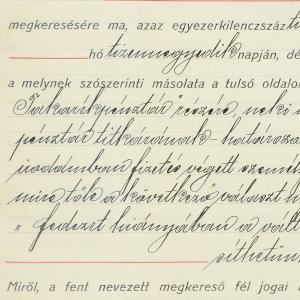 megkeresésére ma, azaz egyezerkilenczszáz ti
hó tizennegyedik napján, dé
a melynek szószerinti másolata a tulsó oldalo
Takarékpénztár részére, neki a
pénztár titkárának – határoza
irodámban fizetés végett szemel
mire tőle a következő választ h
„ fedezet hiányjában a vált
síthetün
Miről, a fent nevezett megkereső fél jogai